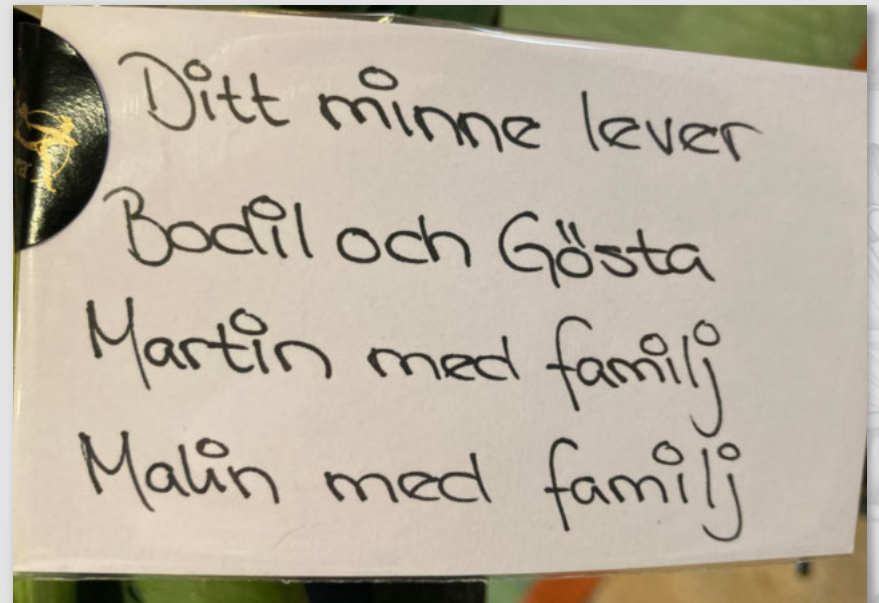 Ditt minne lever
Bodil och Gösta
Martin med familj
Malin med familj